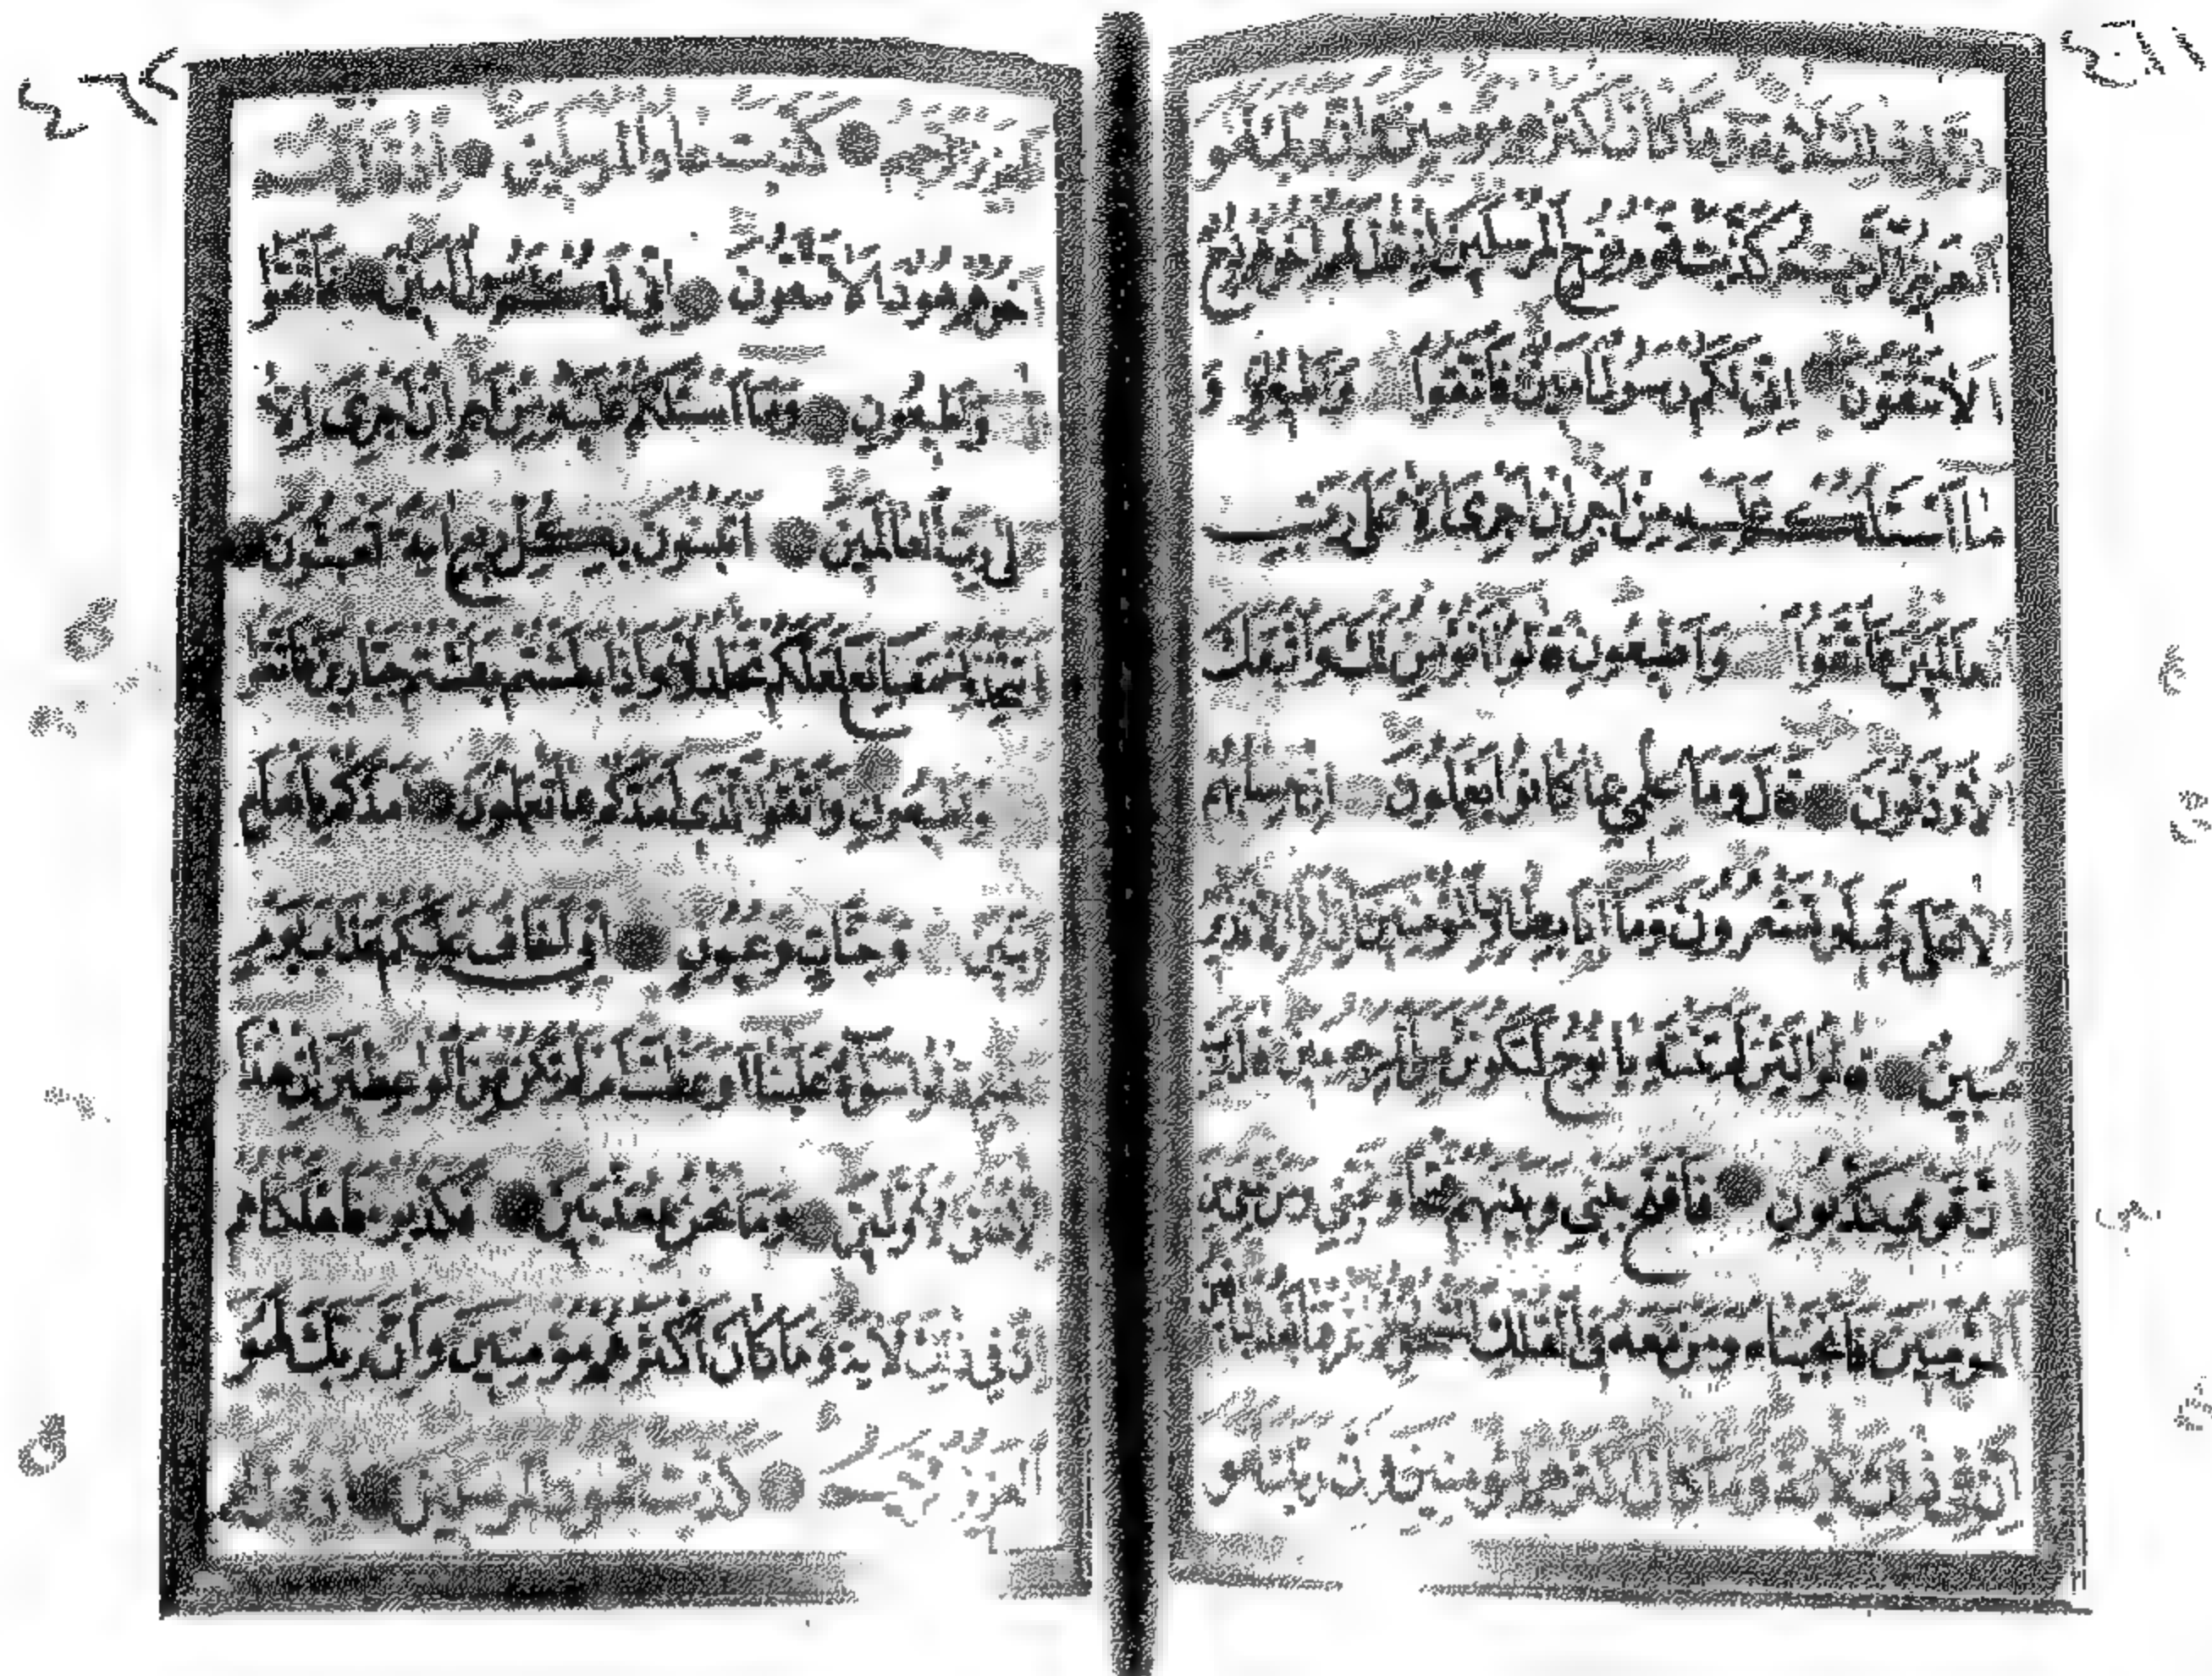 وما كان اكثرهم مؤمنين وان ربك لهو
العزيز الرحيم كذبت قوم نوح المرسلين اذ قال لهم اخوهم نوح
الا تتقون اني لكم رسول امين فاتقوا الله واطيعون و
ما اسئلكم عليه من اجر ان اجرى الا على رب
العالمين فاتقوا الله واطيعون قالوا انؤمن لك واتبعك
الارذلون قال وما علمي بما كانوا يعملون ان حسابهم
الا على ربي لو تشعرون وما انا بطارد المؤمنين ان انا الا نذير
مبين قالوا لئن لم تنته يا نوح لتكونن من المرجومين قال رب
ان قومي كذبون فافتح بيني وبينهم فتحا ونجني ومن معي من
المؤمنين فانجيناه ومن معه في الفلك المشحون ثم اغرقنا بعد الباقين
ان في ذلك لاية وما كان اكثرهم مؤمنين وان ربك لهو
العزيز الرحيم كذبت عاد المرسلين اذ قال لهم
اخوهم هود الا تتقون اني لكم رسول امين فاتقوا
الله واطيعون وما اسئلكم عليه من اجر ان اجرى الا
على رب العالمين اتبنون بكل ريع اية تعبثون
وتتخذون مصانع لعلكم تخلدون واذا بطشتم بطشتم جبارين فاتقوا
الله واطيعون واتقوا الذى امدكم بما تعلمون امدكم بانعام
وبنين وجنات وعيون اني اخاف عليكم عذاب يوم
عظيم قالوا سواء علينا اوعظت ام لم تكن من الواعظين ان هذا
الا خلق الاولين وما نحن بمعذبين فكذبوه فاهلكناهم
ان في ذلك لاية وما كان اكثرهم مؤمنين وان ربك لهو
العزيز الرحيم كذبت ثمود المرسلين اذ قال